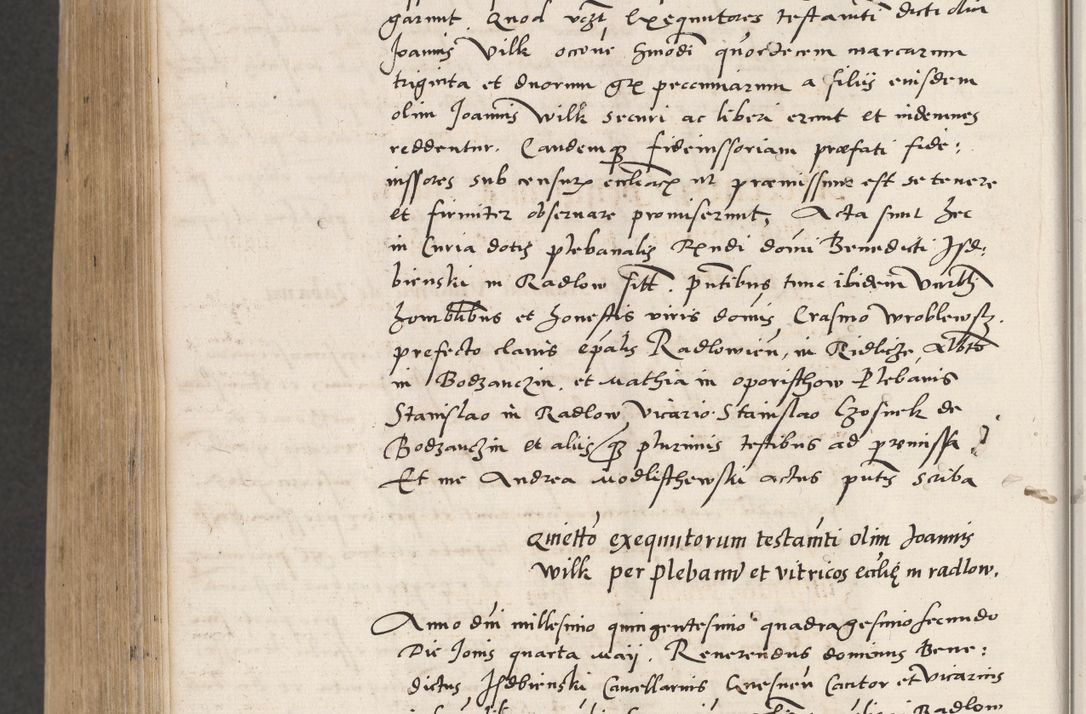 garunt. Quod vczt Exequutores testamti dicti olim
Joannis Wilk occõne hmõdi quordecem marcarum
triginta et duorum gr peccuniarum a filijs eiusdem
olim Joannis Wilk securi ac liberi erunt et indemnes
reddentur. Eandemq fideiussoriam præfati fide:
iussores sub censuræ ecclîacæ ut præmissum est se tenere
et firmiter observare promiserunt, Acta sunt hec
in Curia dotis plebanalis Rendi domi Benedicti Jsd:
bienski in Radlow sitt. pntibus tunc ibidem
honorblibus et honestis viris domis Erasmo Wroblewsky
prefecto clavis epalis Radlowien, in Ridlicze Albto
in Bodzanczin, et Mathia in oporisthow Plebanis
Stanislao in Radlow Vicario. Stanislao Czosnek de
Bodzanczin et alijs q plurimis testibus ad premissa
Et me Andrea Modlisthewski actus pntis scriba
Quietto exequutorum testamti olim Joannis
Wilk per plebanum et vitricos ecclię in radlow.
Anno dni millesimo quingentesimo quadragesimo secundo
Die Jovis quarta Maij. Reverendus dominus Bene:
dictus Jsdbienski Cancellarius Gnesnen Cantor et Vicarius
Radlow